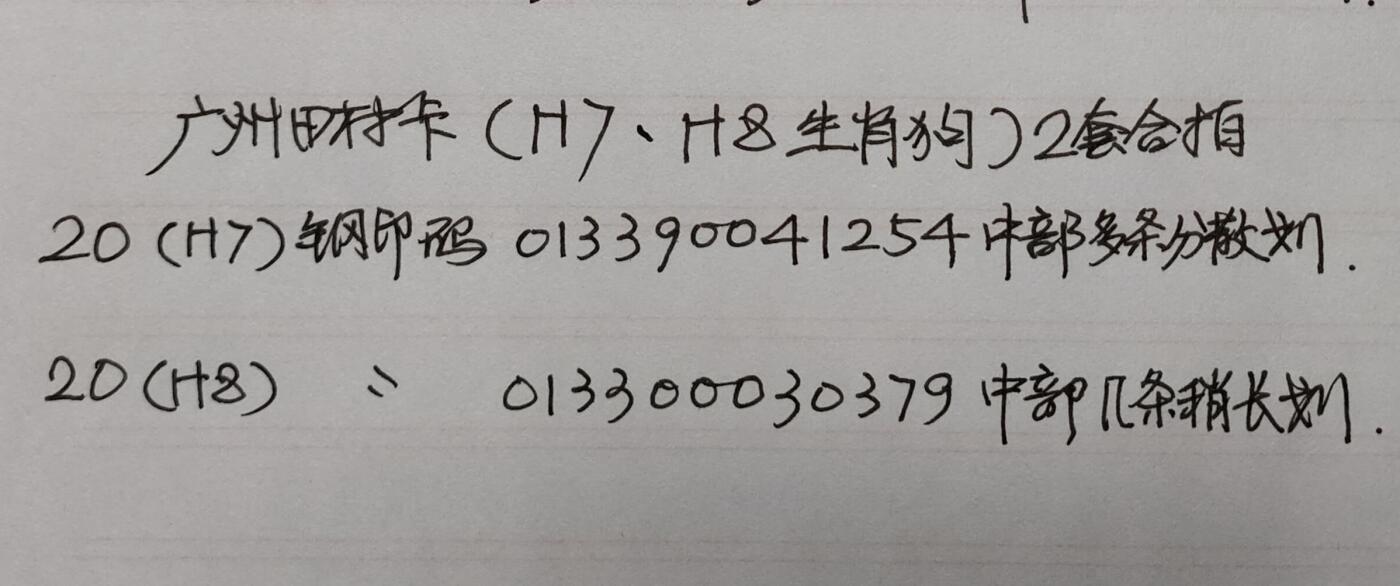 广州田村卡（H7、H8生肖狗）2套合拍
20（H7）钢印码 013390041254 中部多条分散划.
20（H8） 〃 013300030379 中部几条稍长划.